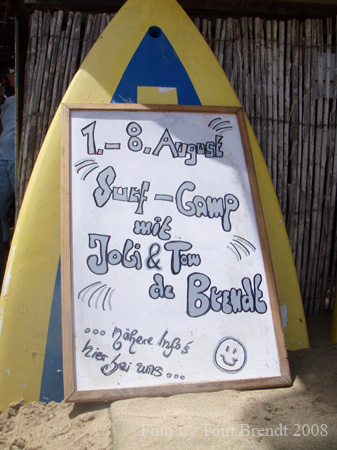 1. – 8. August
Surf – Camp
mit
Joli & Tom
de Brendt
... nähere Info's
hier bei uns ...
Foto by Tom Brendt 2008